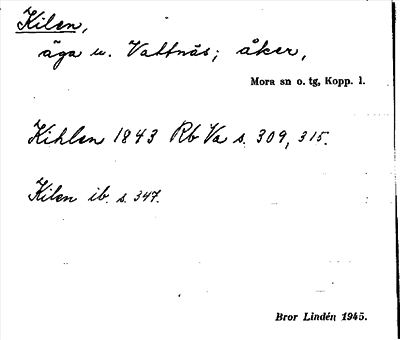 Kilen,
äga u. Vattnäs; åker,
Mora sn o. tg, Kopp. l.
Kihlen 1843 Rb Va s. 309, 315.
Kilen ib. s. 347.
Bror Lindén 1945.